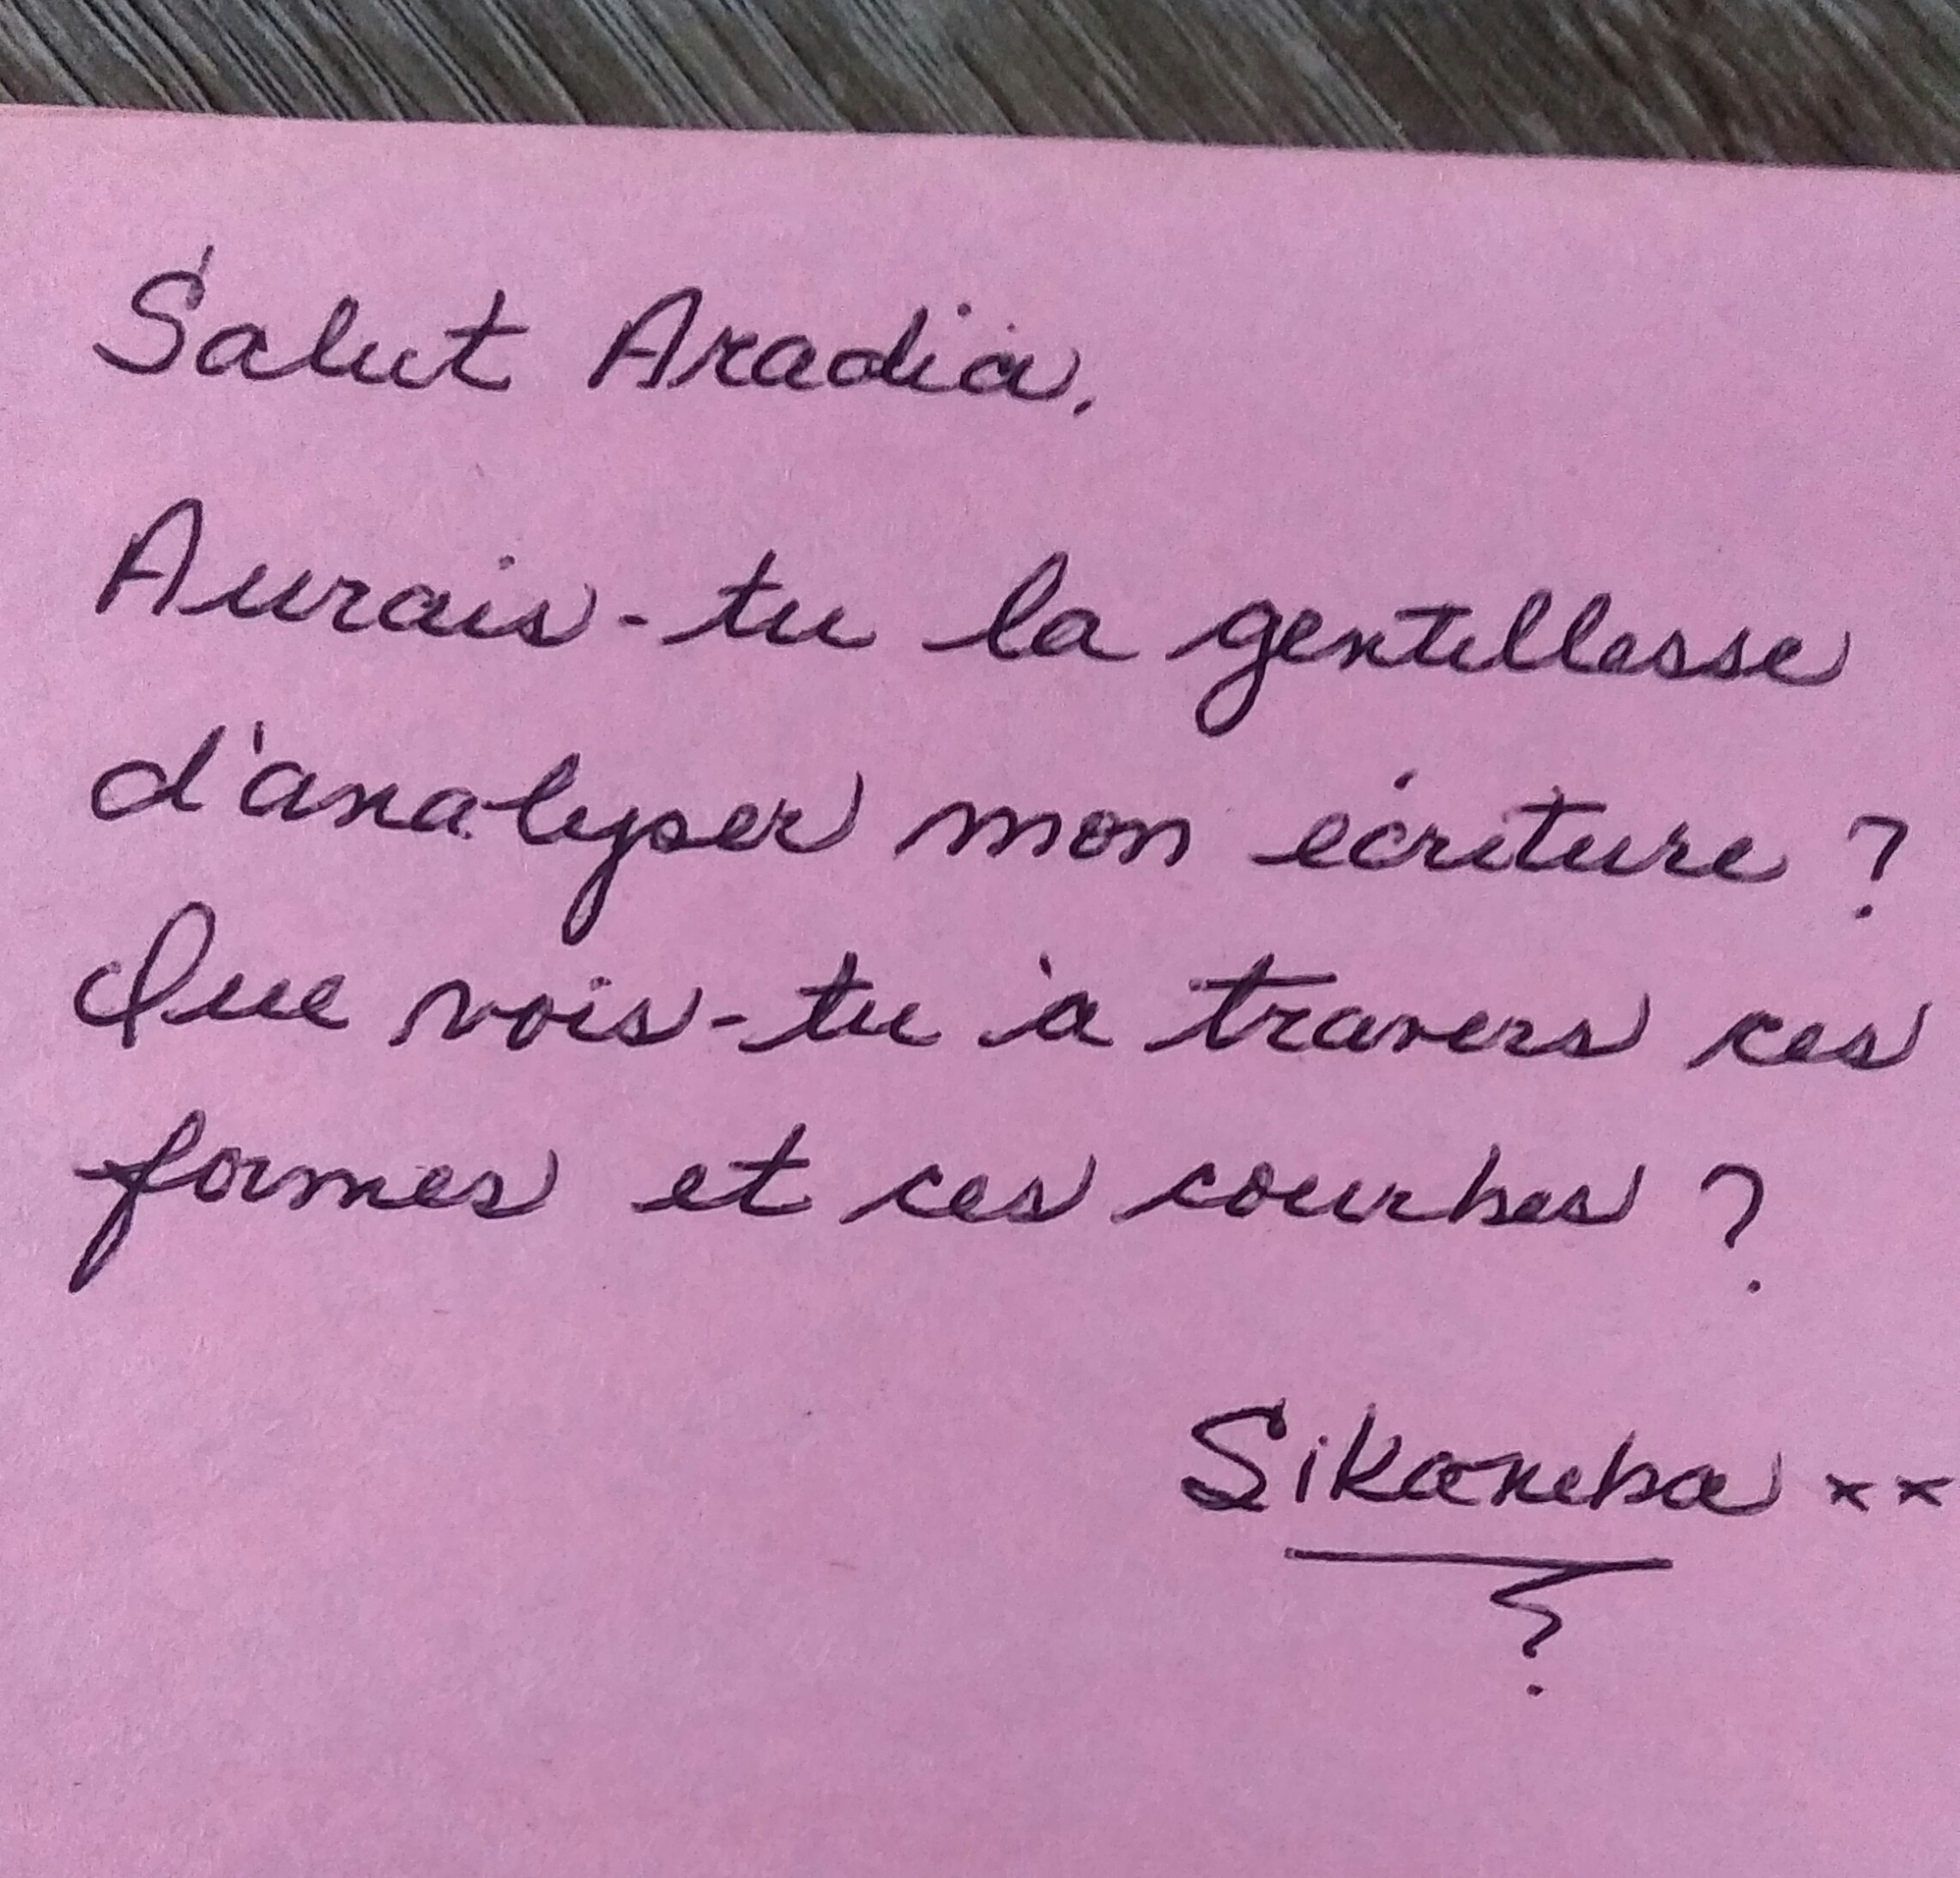 Salut Aradia,
Aurais-tu la gentillesse
d'analyser mon écriture ?
Que vois-tu à travers ces
formes et ces courbes ?
Sikamba xx
?